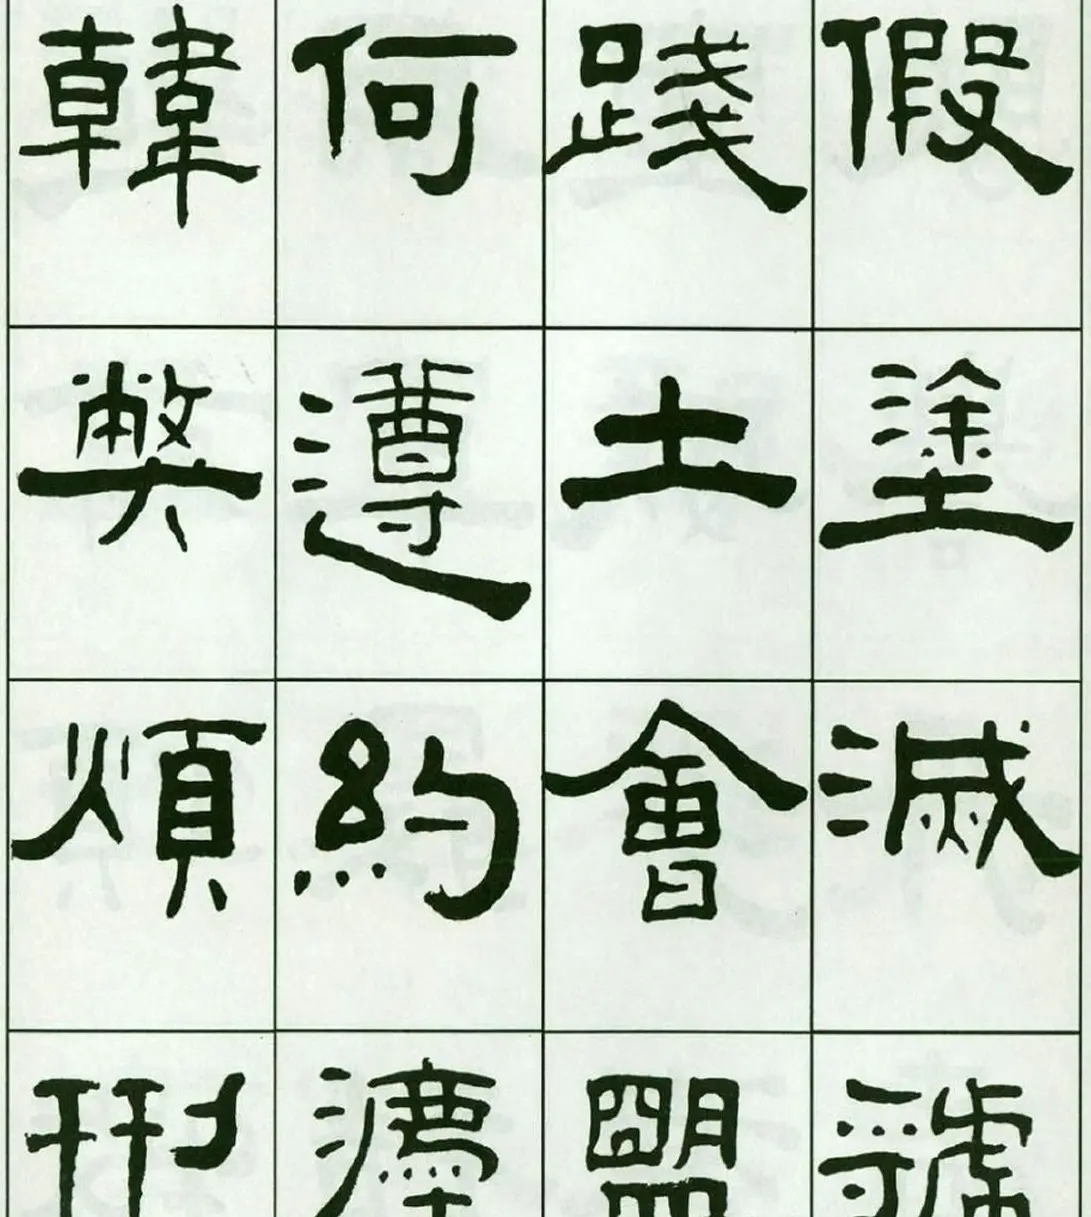 假塗滅虢
踐土會盟
何遵約灋
韓弊煩刑